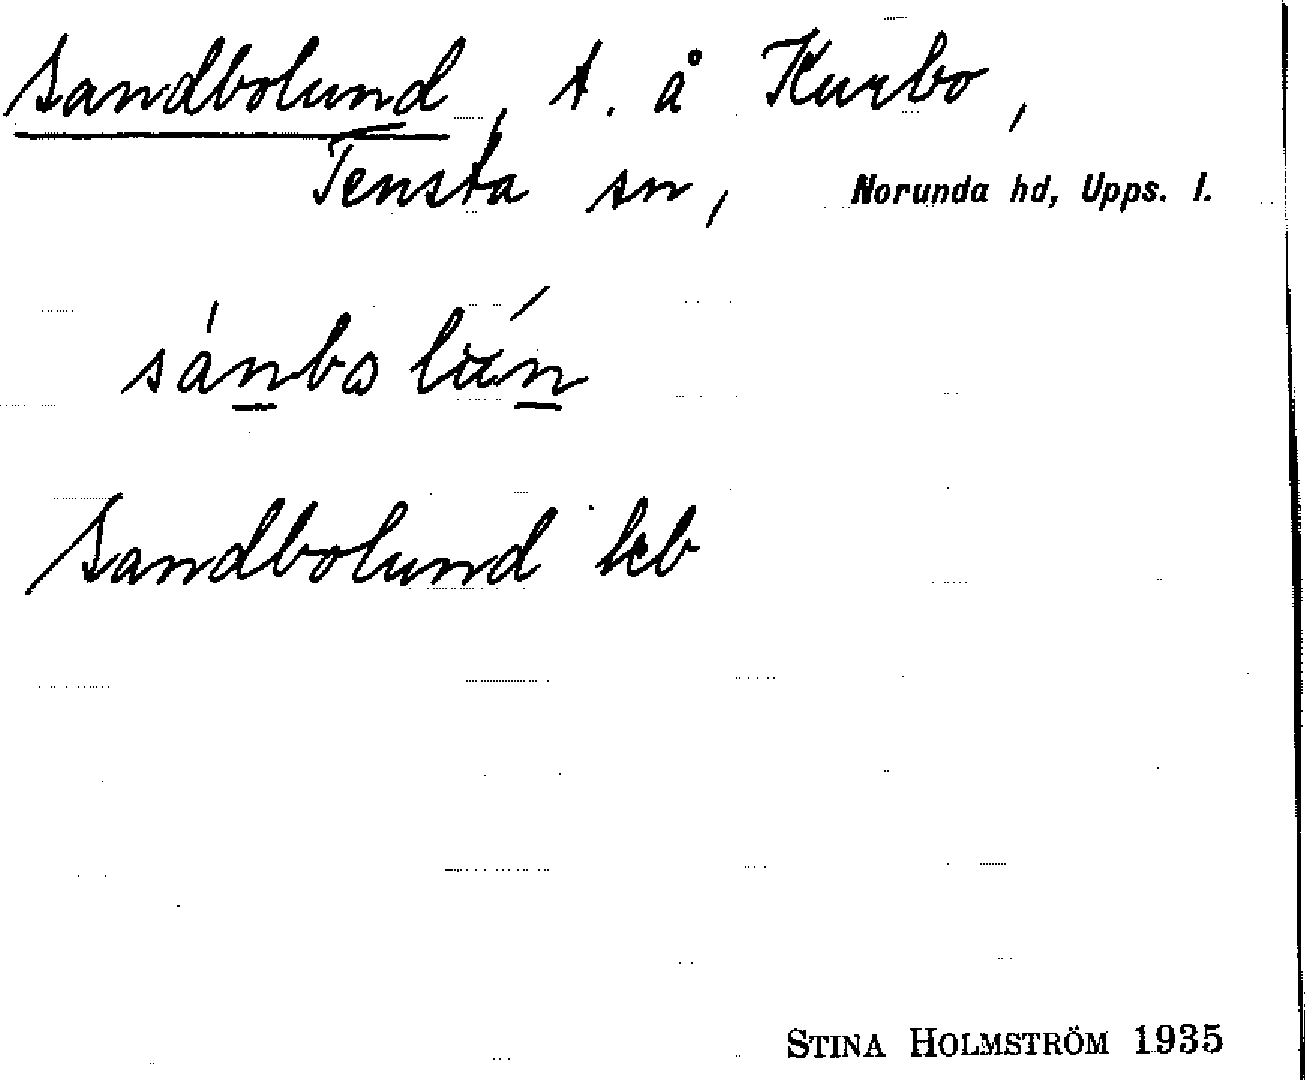 Sandbolund, t. å Kurbo,
Tensta sn, Norunda hd, Upps. l.
Sandbolund hcb
STINA HOLMSTRÖM 1935